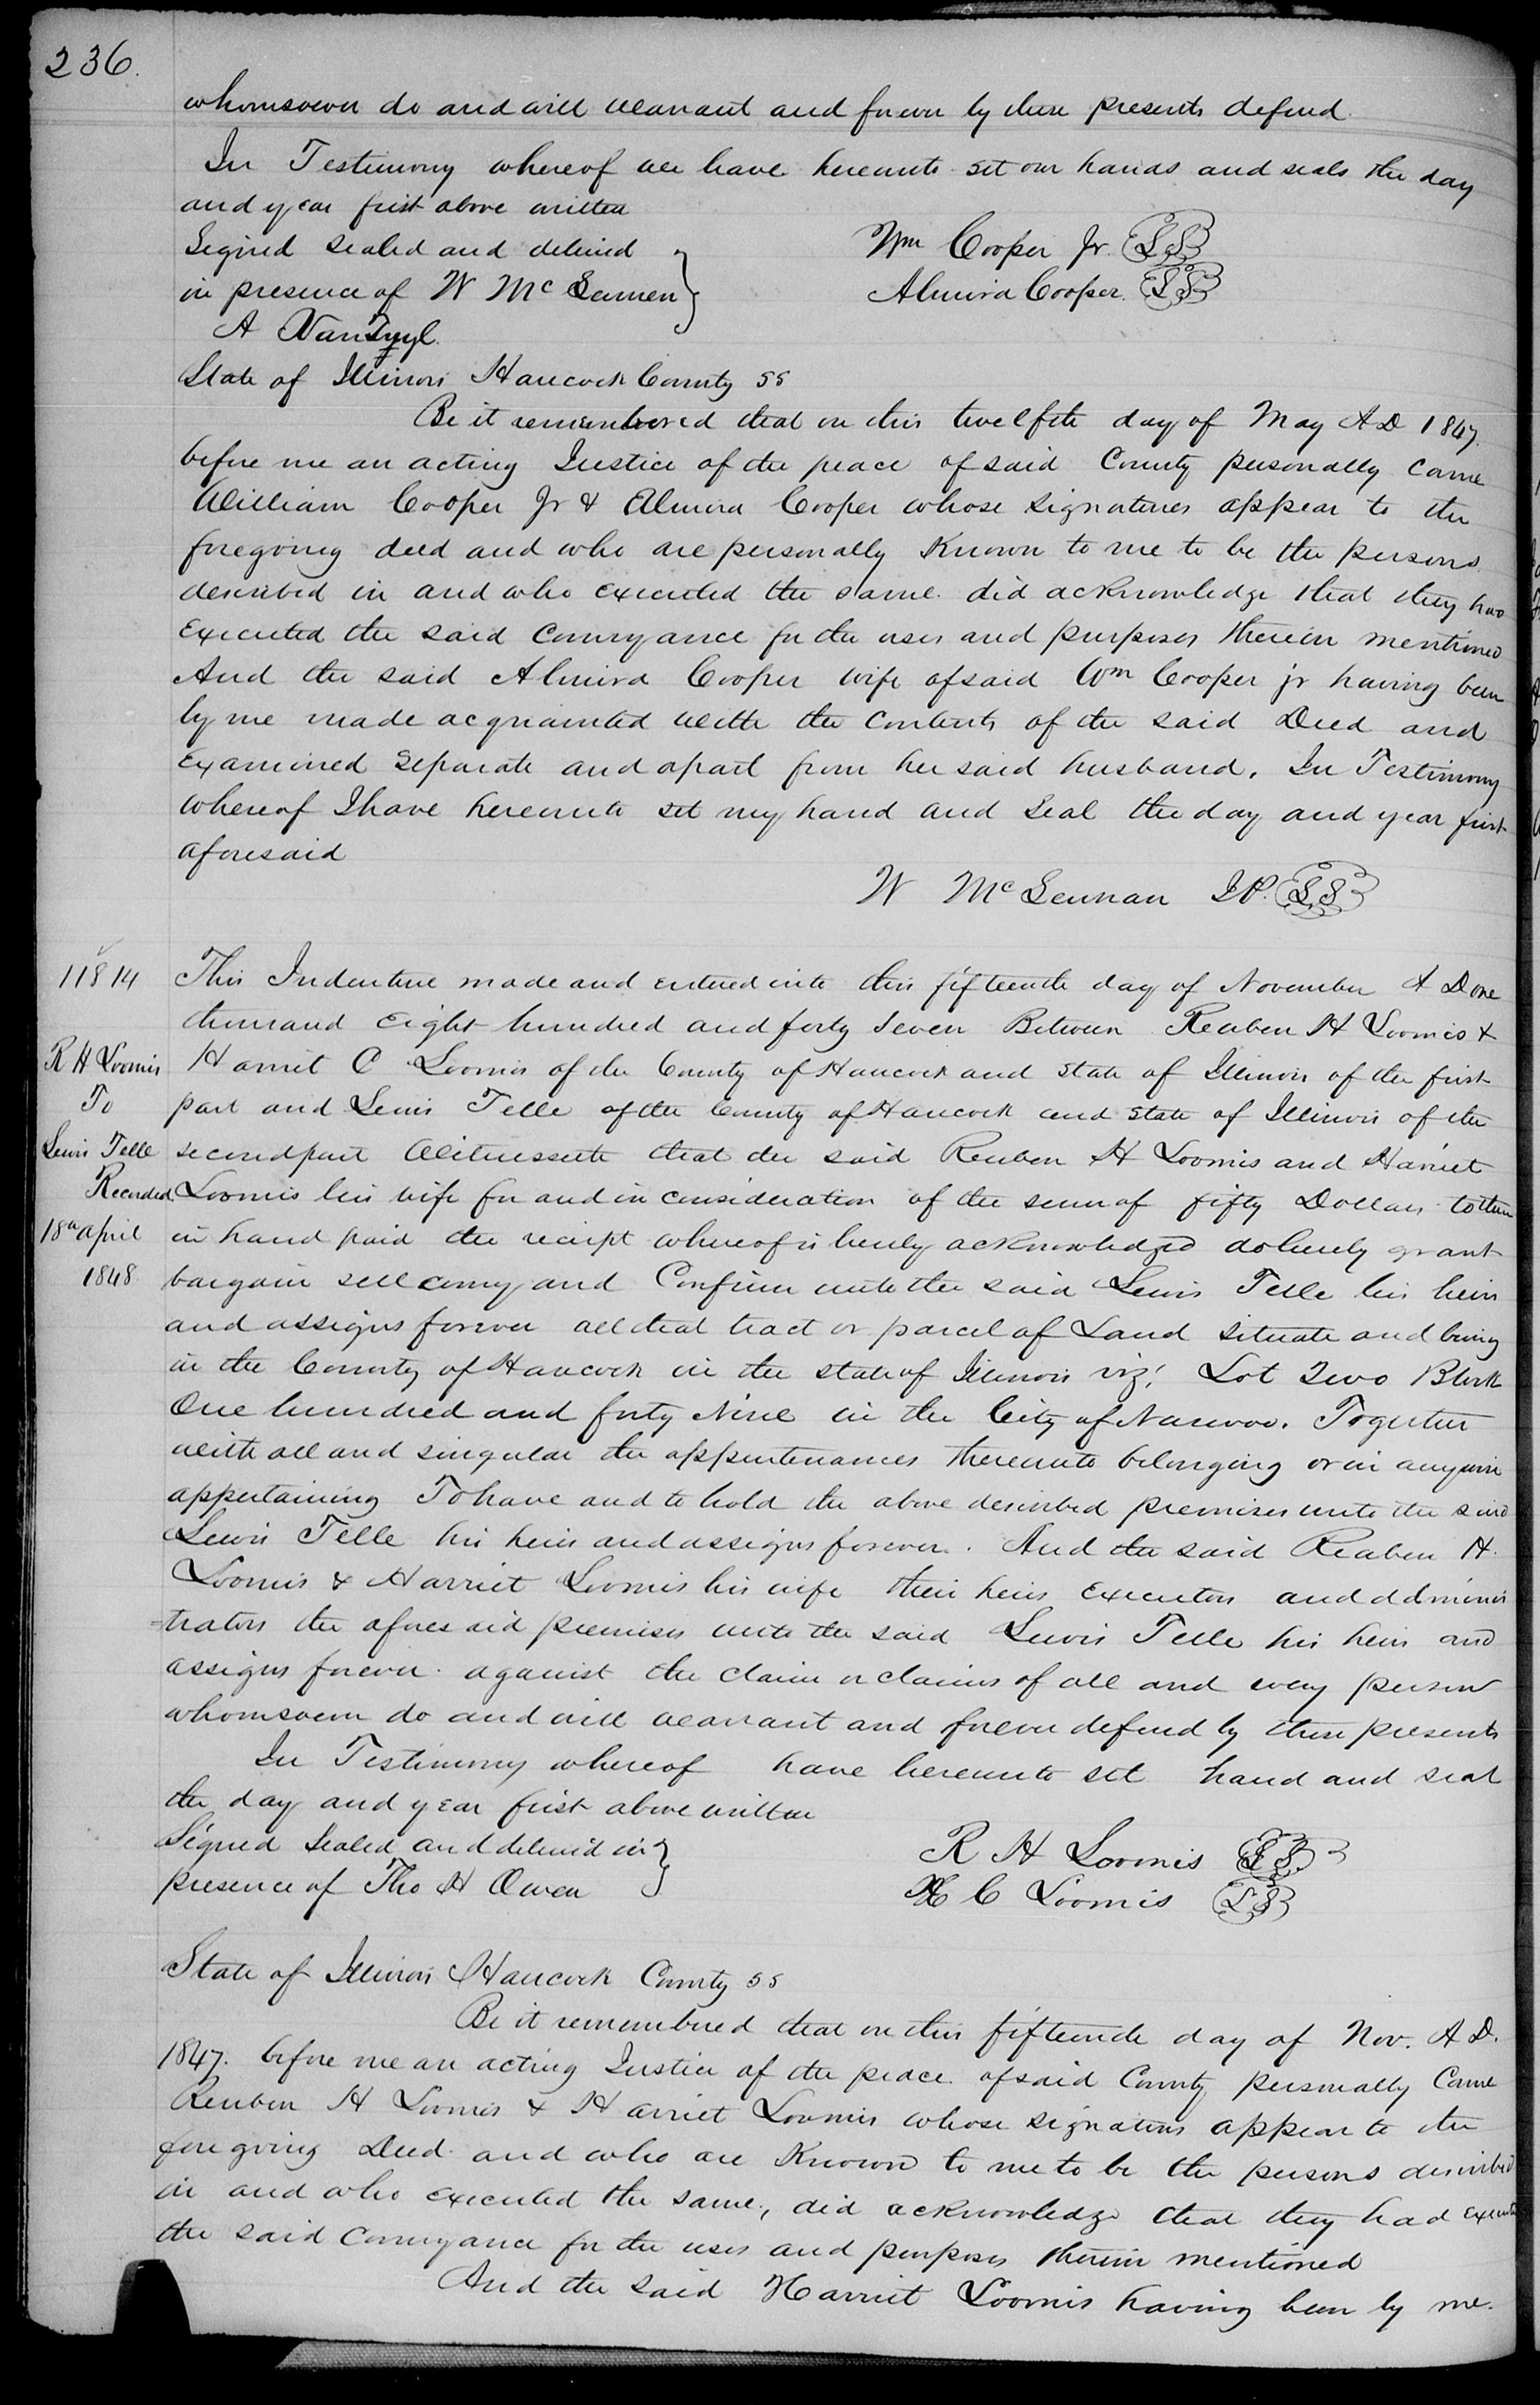 236.
whomsoever do and will warrant and forever by these presents defend.
In Testimony whereof we have hereunto set our hands and seals the day
and year first above written
Signed sealed and delivered
in presence of W McLennen
A VanTuyl.
Wm Cooper Jr. LS
Almira Cooper. LS
State of Illinois Hancock County ss
Be it remembered that on this twelfth day of May A D 1847.
before me an acting Justice of the peace of said County personally came
William Cooper Jr & Almira Cooper whose signatures appear to the
foregoing deed and who are personally Known to me to be the persons
described in and who executed the same. did acknowledge that they had
executed the said Conveyance for the uses and purposes therein mentioned
And the said Almira Cooper wife of said Wm Cooper jr having been
by me made acquainted with the contents of the said Deed and
examined separate and apart from her said husband. In Testimony
whereof I have hereunto set my hand and seal the day and year first
aforesaid
W McLennan J P. LS
11814
R H Loomis
To
Lewis Telle
Recorded
18th april
1848.
This Indenture made and entered into this fifteenth day of November A D one
thousand eight hundred and forty seven Between Reuben H Loomis &
Harriet C Loomis of the County of Hancock and state of Illinois of the first
part and Lewis Telle of the County of Hancock and state of Illinois of the
second part Witnesseth that the said Reuben H Loomis and Harriet
Loomis his wife for and in consideration of the sum of fifty Dollars to them
in hand paid the receipt whereof is hereby acknowledged do hereby grant
bargain sell convey and Confirm unto the said Lewis Telle his heirs
and assigns forever all that tract or parcel of Land situate and being
in the County of Hancock in the state of Illinois viz: Lot Two Block
One hundred and forty Nine in the City of Nauvoo. Together
with all and singular the appurtenances thereunto belonging or in anywise
appertaining To have and to hold the above described premises unto the said
Lewis Telle his heirs and assigns forever. And the said Reuben H.
Loomis & Harriet Loomis his wife their heirs executors and adminis
=trators the aforesaid premises unto the said Lewis Telle his heirs and
assigns forever. against the claim or claims of all and every person
whomsoever do and will warrant and forever defend by these presents
In Testimony whereof have hereunto set hand and seal
the day and year first above written
Signed Sealed and delivered in
presence of Tho H Owen
R H Loomis LS
H C Loomis LS
State of Illinois Hancock County ss
Be it remembered that on this fifteenth day of Nov. A D.
1847. before me an acting Justice of the peace of said County personally Came
Reuben H Loomis & Harriet Loomis whose signatures appear to the
foregoing Deed. and who are Known to me to be the persons described
in and who executed the same, did acknowledge that they had executed
the said conveyance for the uses and purposes therein mentioned
And the said Harriet Loomis having been by me.